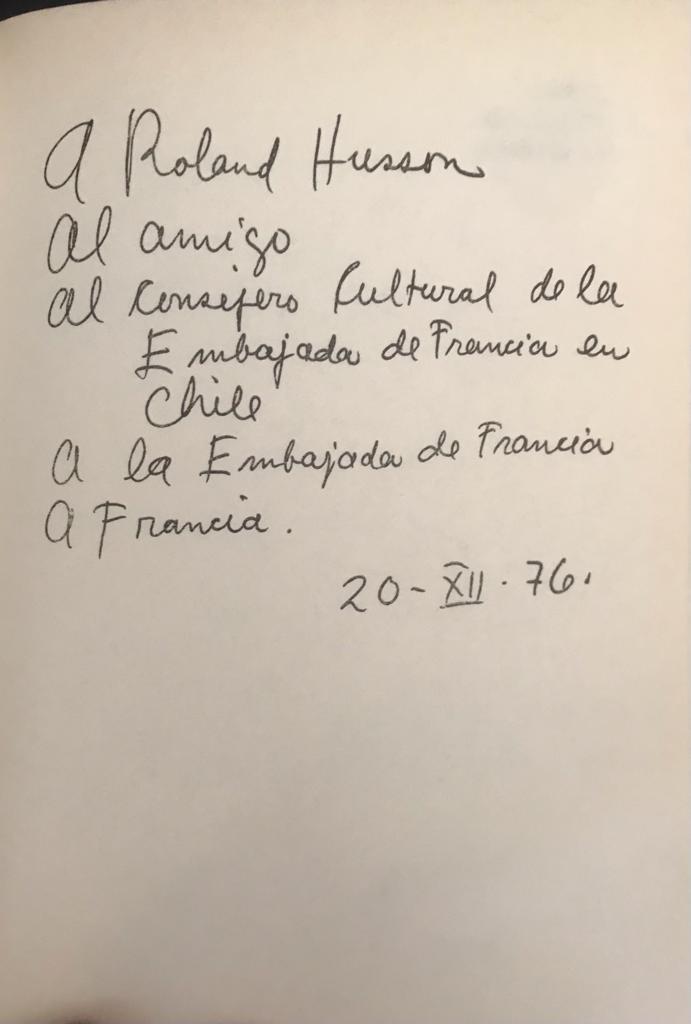 A Roland Husson
Al amigo
Al Consejero Cultural de la
Embajada de Francia en
Chile
A la Embajada de Francia
A Francia.
20-XII.76.